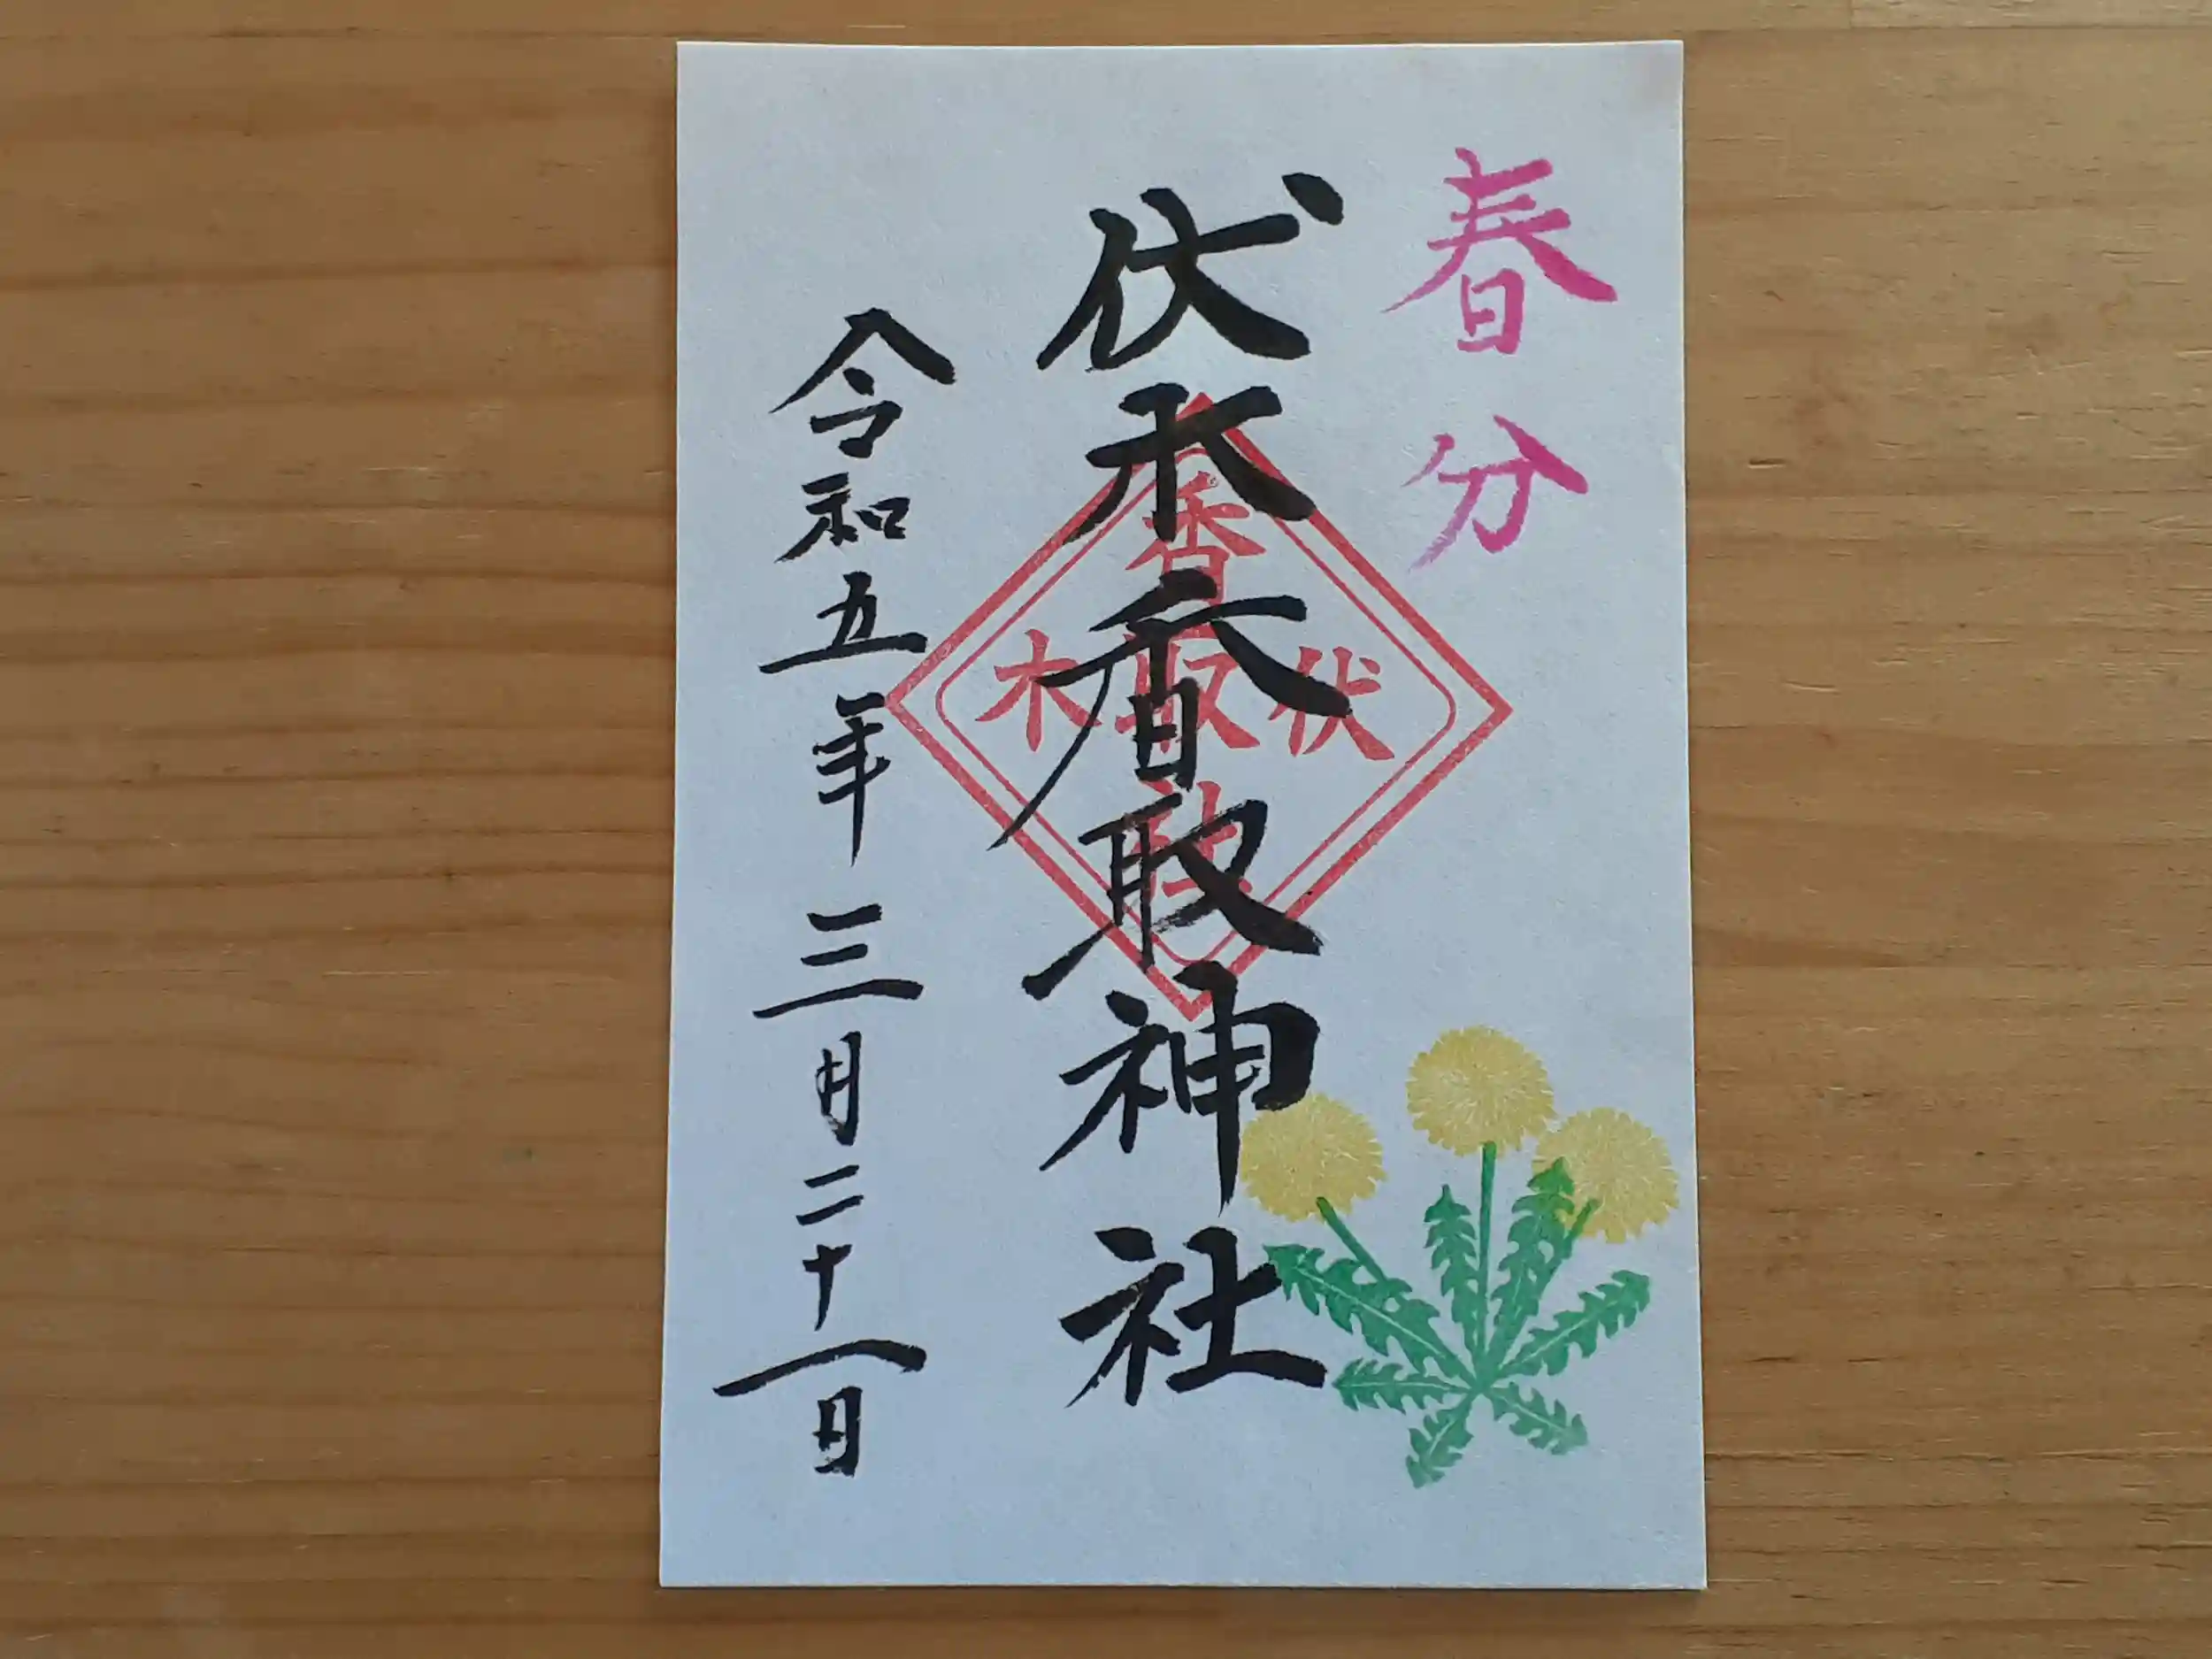 春分
伏木香取神社
香取神社
伏木
令和五年三月二十一日